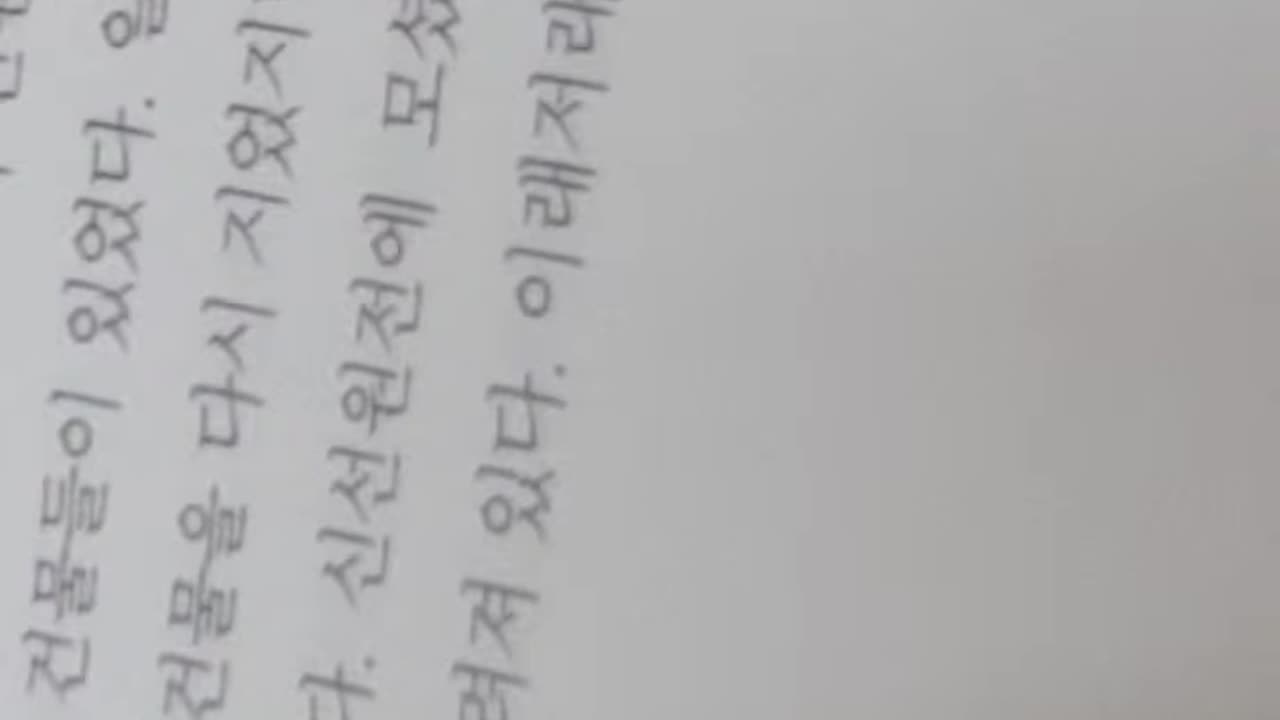 건물들이 있었다.
건물을 다시 지었지
다. 신선원전에 모셨
려져 있다. 이래저래